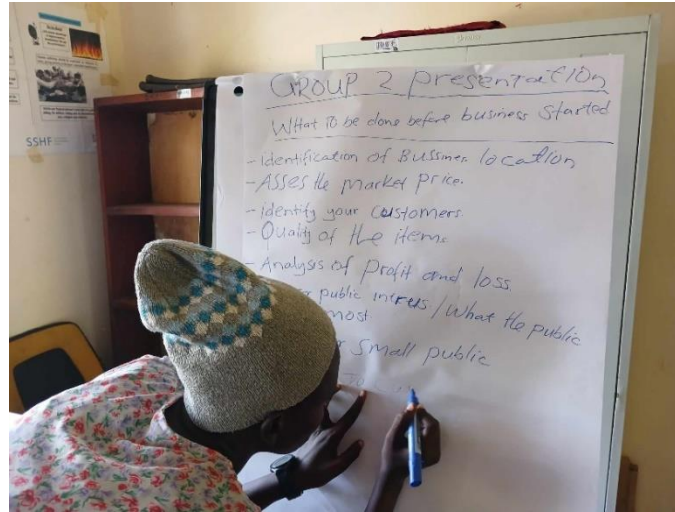 GROUP 2 presentation
What To be done before business started
- Identification of Bussines location
- Asses the market price.
- identify your customers
- Quality of the items
- Analysis of Profit and loss
public / What the public
most
small public
SSHF